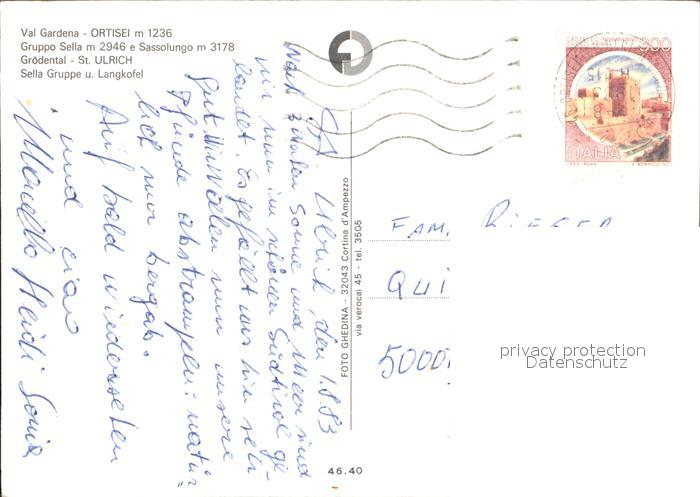 Val Gardena - ORTISEI m 1236
Gruppo Sella m 2946 e Sassolungo m 3178
Grödental - St. ULRICH
Sella Gruppe u. Langkofel
St. Ulrich, den 1.8.83
Nach soviel Sonne und Meer sind
wir nun im schönen Südtirol ge-
landet. Es gefällt uns hier sehr
gut. Wir wollen nun unsere
Pfunde abstrampeln: natür-
lich nur bergab.
Auf bald wiedersehen
und ciao
Marcello Heidi Sonia
FOTO GHEDINA - 32043 Cortina d'Ampezzo
via verocai 45 - tel. 3505
46.40
300
ITALIA
FAM.
QUI
5000
privacy protection
Datenschutz